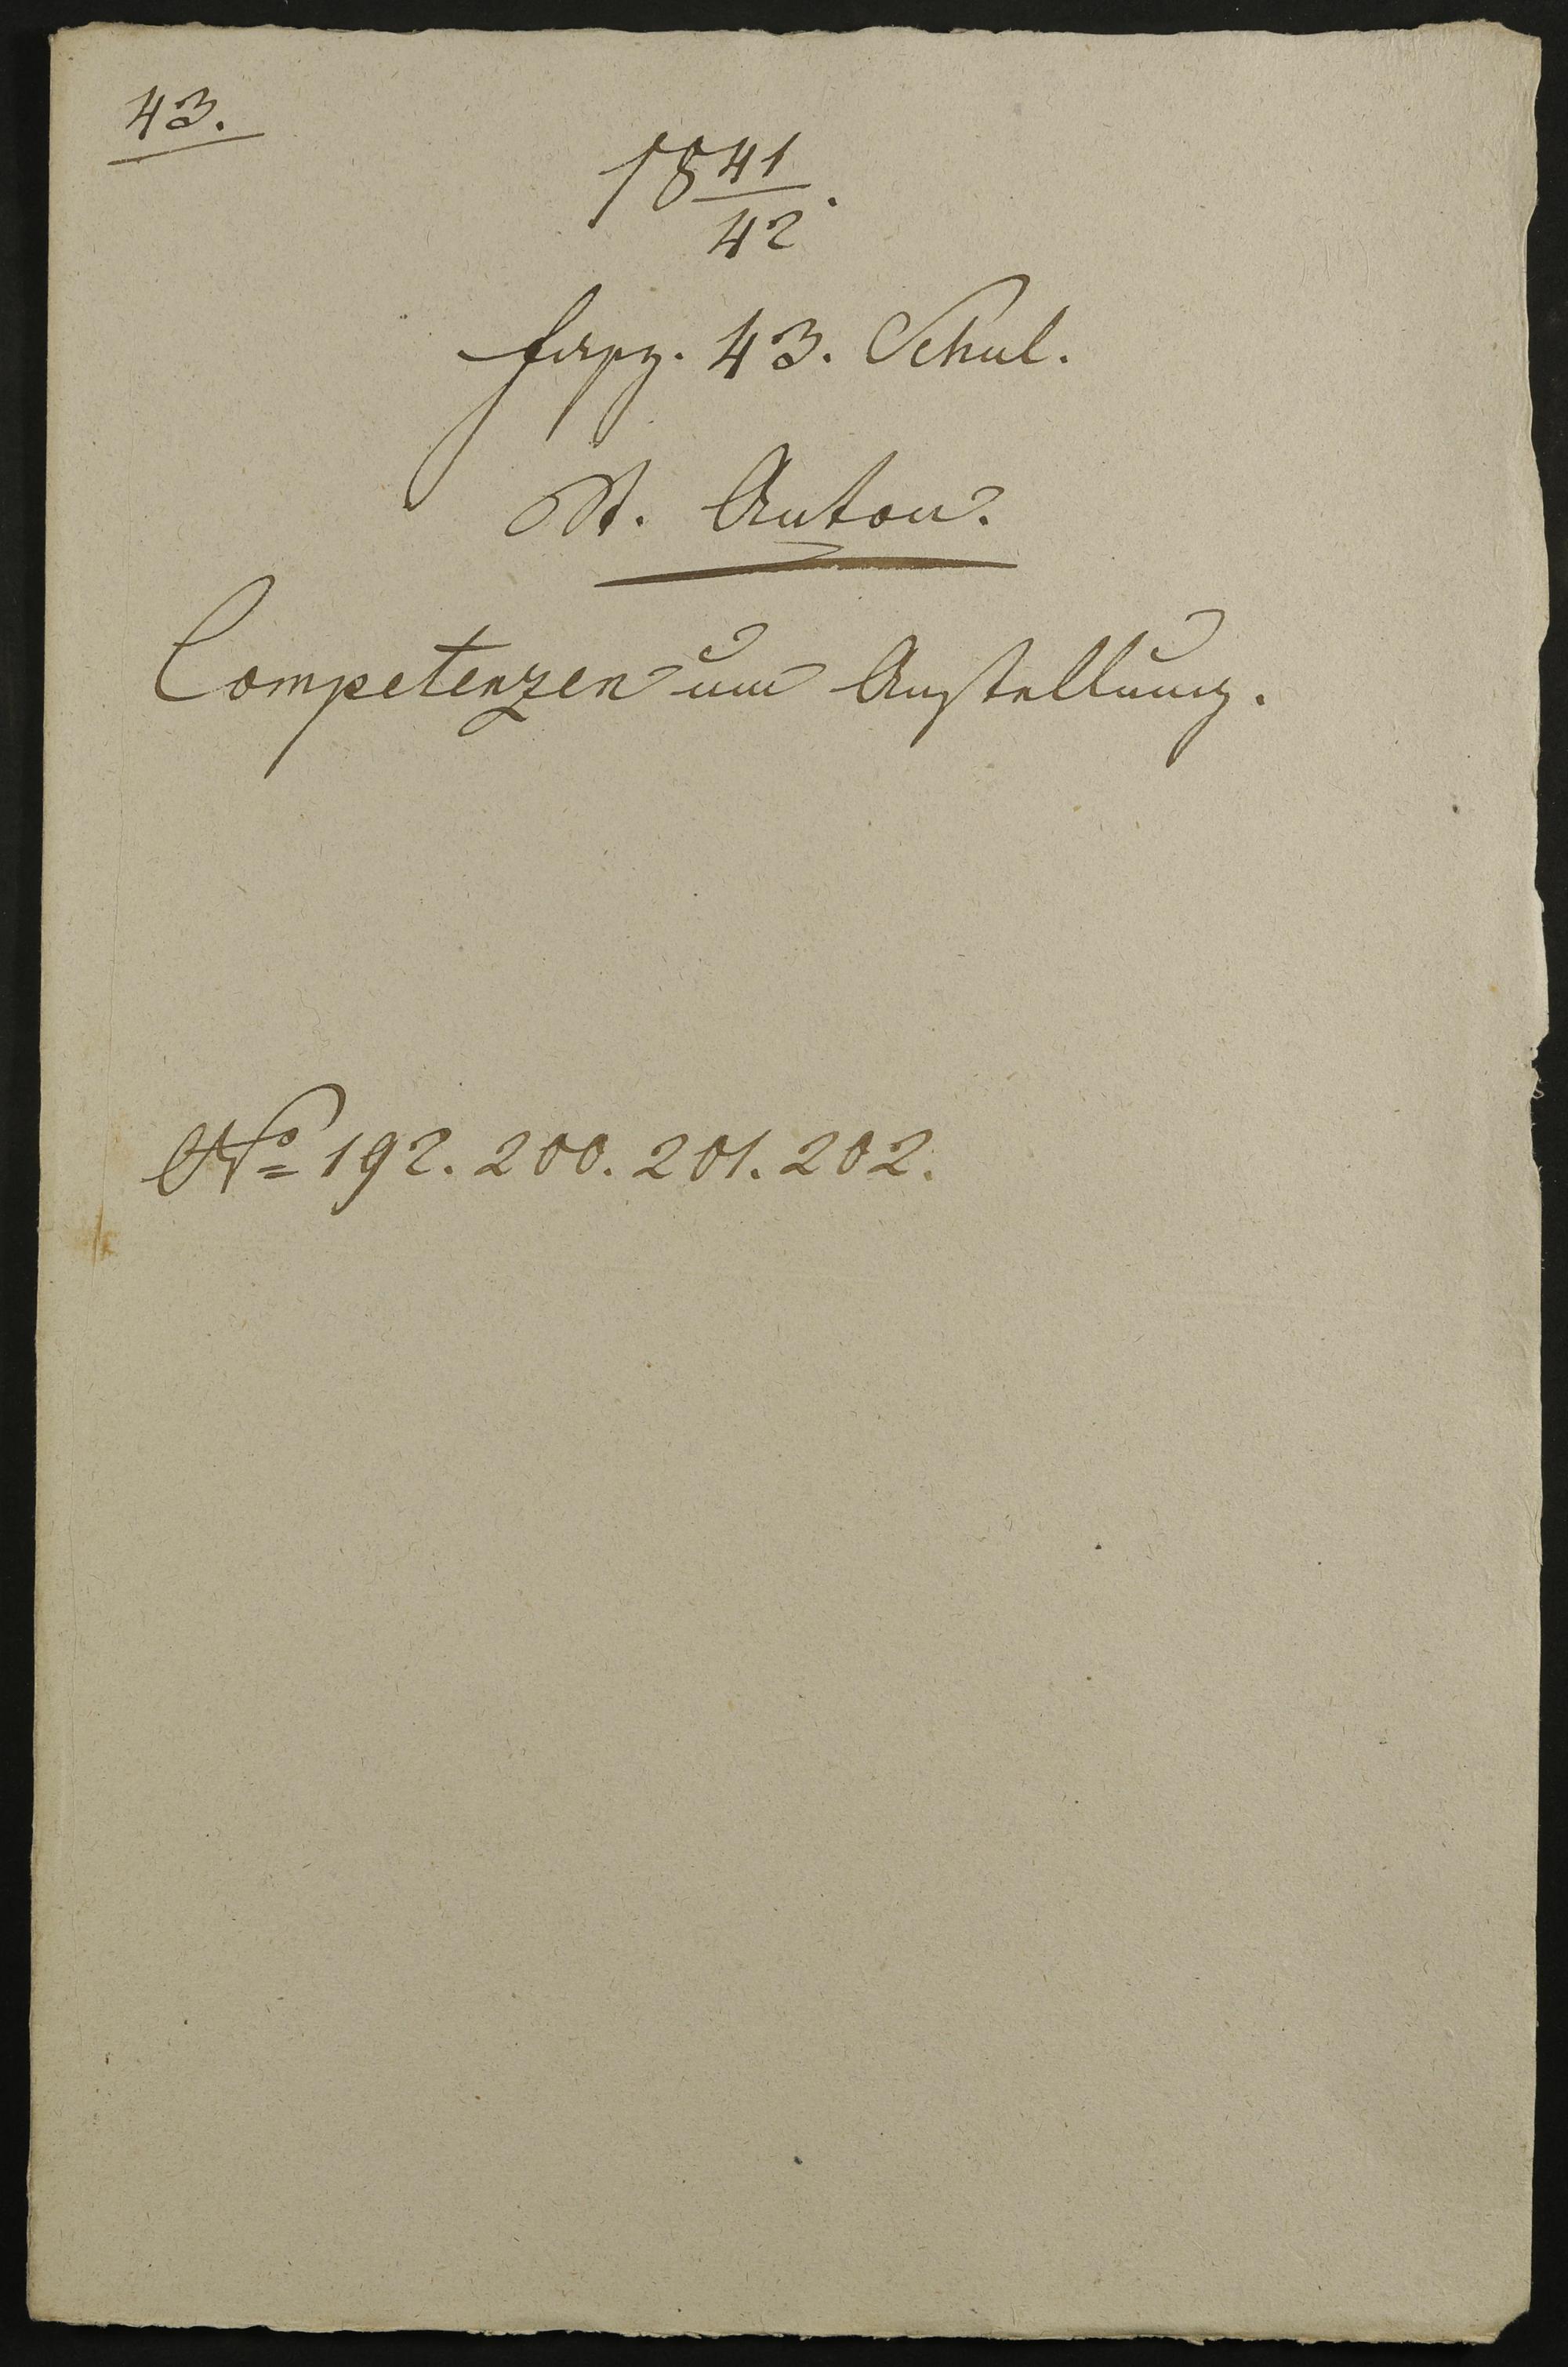 43.
18 41/42.
fasz. 43. Schul.
St. Anton.
Competenzen um Anstellung.
No 192. 200. 201. 202.